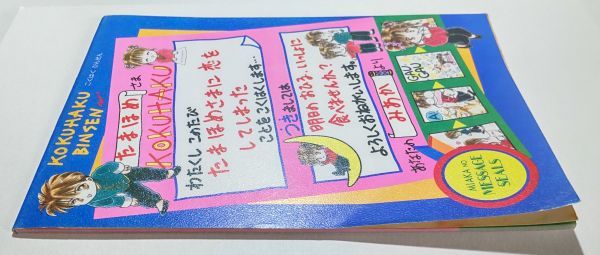 KOKUHAKU
BINSEN
こくはく びんせん
たまほめ さま
KOKUHAKU
わたくし このたび
たまほめさまに 恋を
してしまった
ことを こくはくします…
つきましては
明日の おひる、いっしょに
食べませんか?
よろしくおねがいします。
あなたの みあか より
MIAKA NO
MESSAGE
SEALS